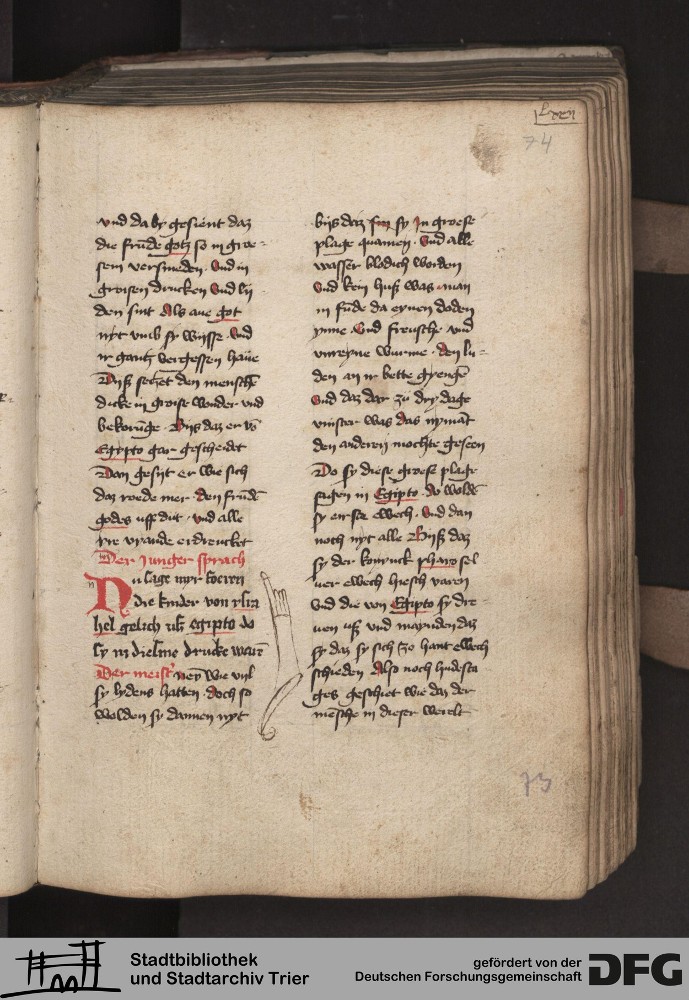 lxxii
74
vnd da by gesient daz
die frūde gotz so in groe-
sem versmeden. Vnd in
groisen drucken Vnd ly
den sint Als aue got
nyt vmb sy wysse. Vnd
ir gantz vergessen haūe
Dyß setzet den mensche
dicke in groise wonder vnd
bekorūge. Byß daz er vō
Egypto gar gescheidet
Dan gesyt er wie sich
daz roede mer den frūdē
godes uff dut. vnd alle
yre vyande erdrencket
Der Junger sprach
Nu sage myr koeren
die kinder von ysra
hel gelich uß egipto do
sy in dieseme drucke warē
Der meist' neȳ wie vyl
sy lydens hatten. doch so
wolden sy dannen nyt
byß daz sy Jn groese
plage quamen. Vnd alle
wasser blodich worden
Vnd kein huß was. man
in fūde da eynen doden
ynne. Vnd freusche. vnd
vnreyne wurme. den lu-
den an ir bette gyengē
Vnd daz dar zu dry dage
vinster was das nymāt
den anderen mochte geseen
Do sy diese groese plage
sagen in Egipto. do woldē
sy eirste ewech. Vnd dan
noch nyt alle Byß daz
sy der konynck pharo sel
uer ewech hiesch varen
Vnd die von Egipto sy dre-
uen uß vnd maynden daz
sy daz sy sich zo hant ewech
schieden Also noch hudesta
ges geschiet wie daz der
mēsche in dieser werelt
73
Stadtbibliothek
und Stadtarchiv Trier
gefördert von der
Deutschen Forschungsgemeinschaft
DFG